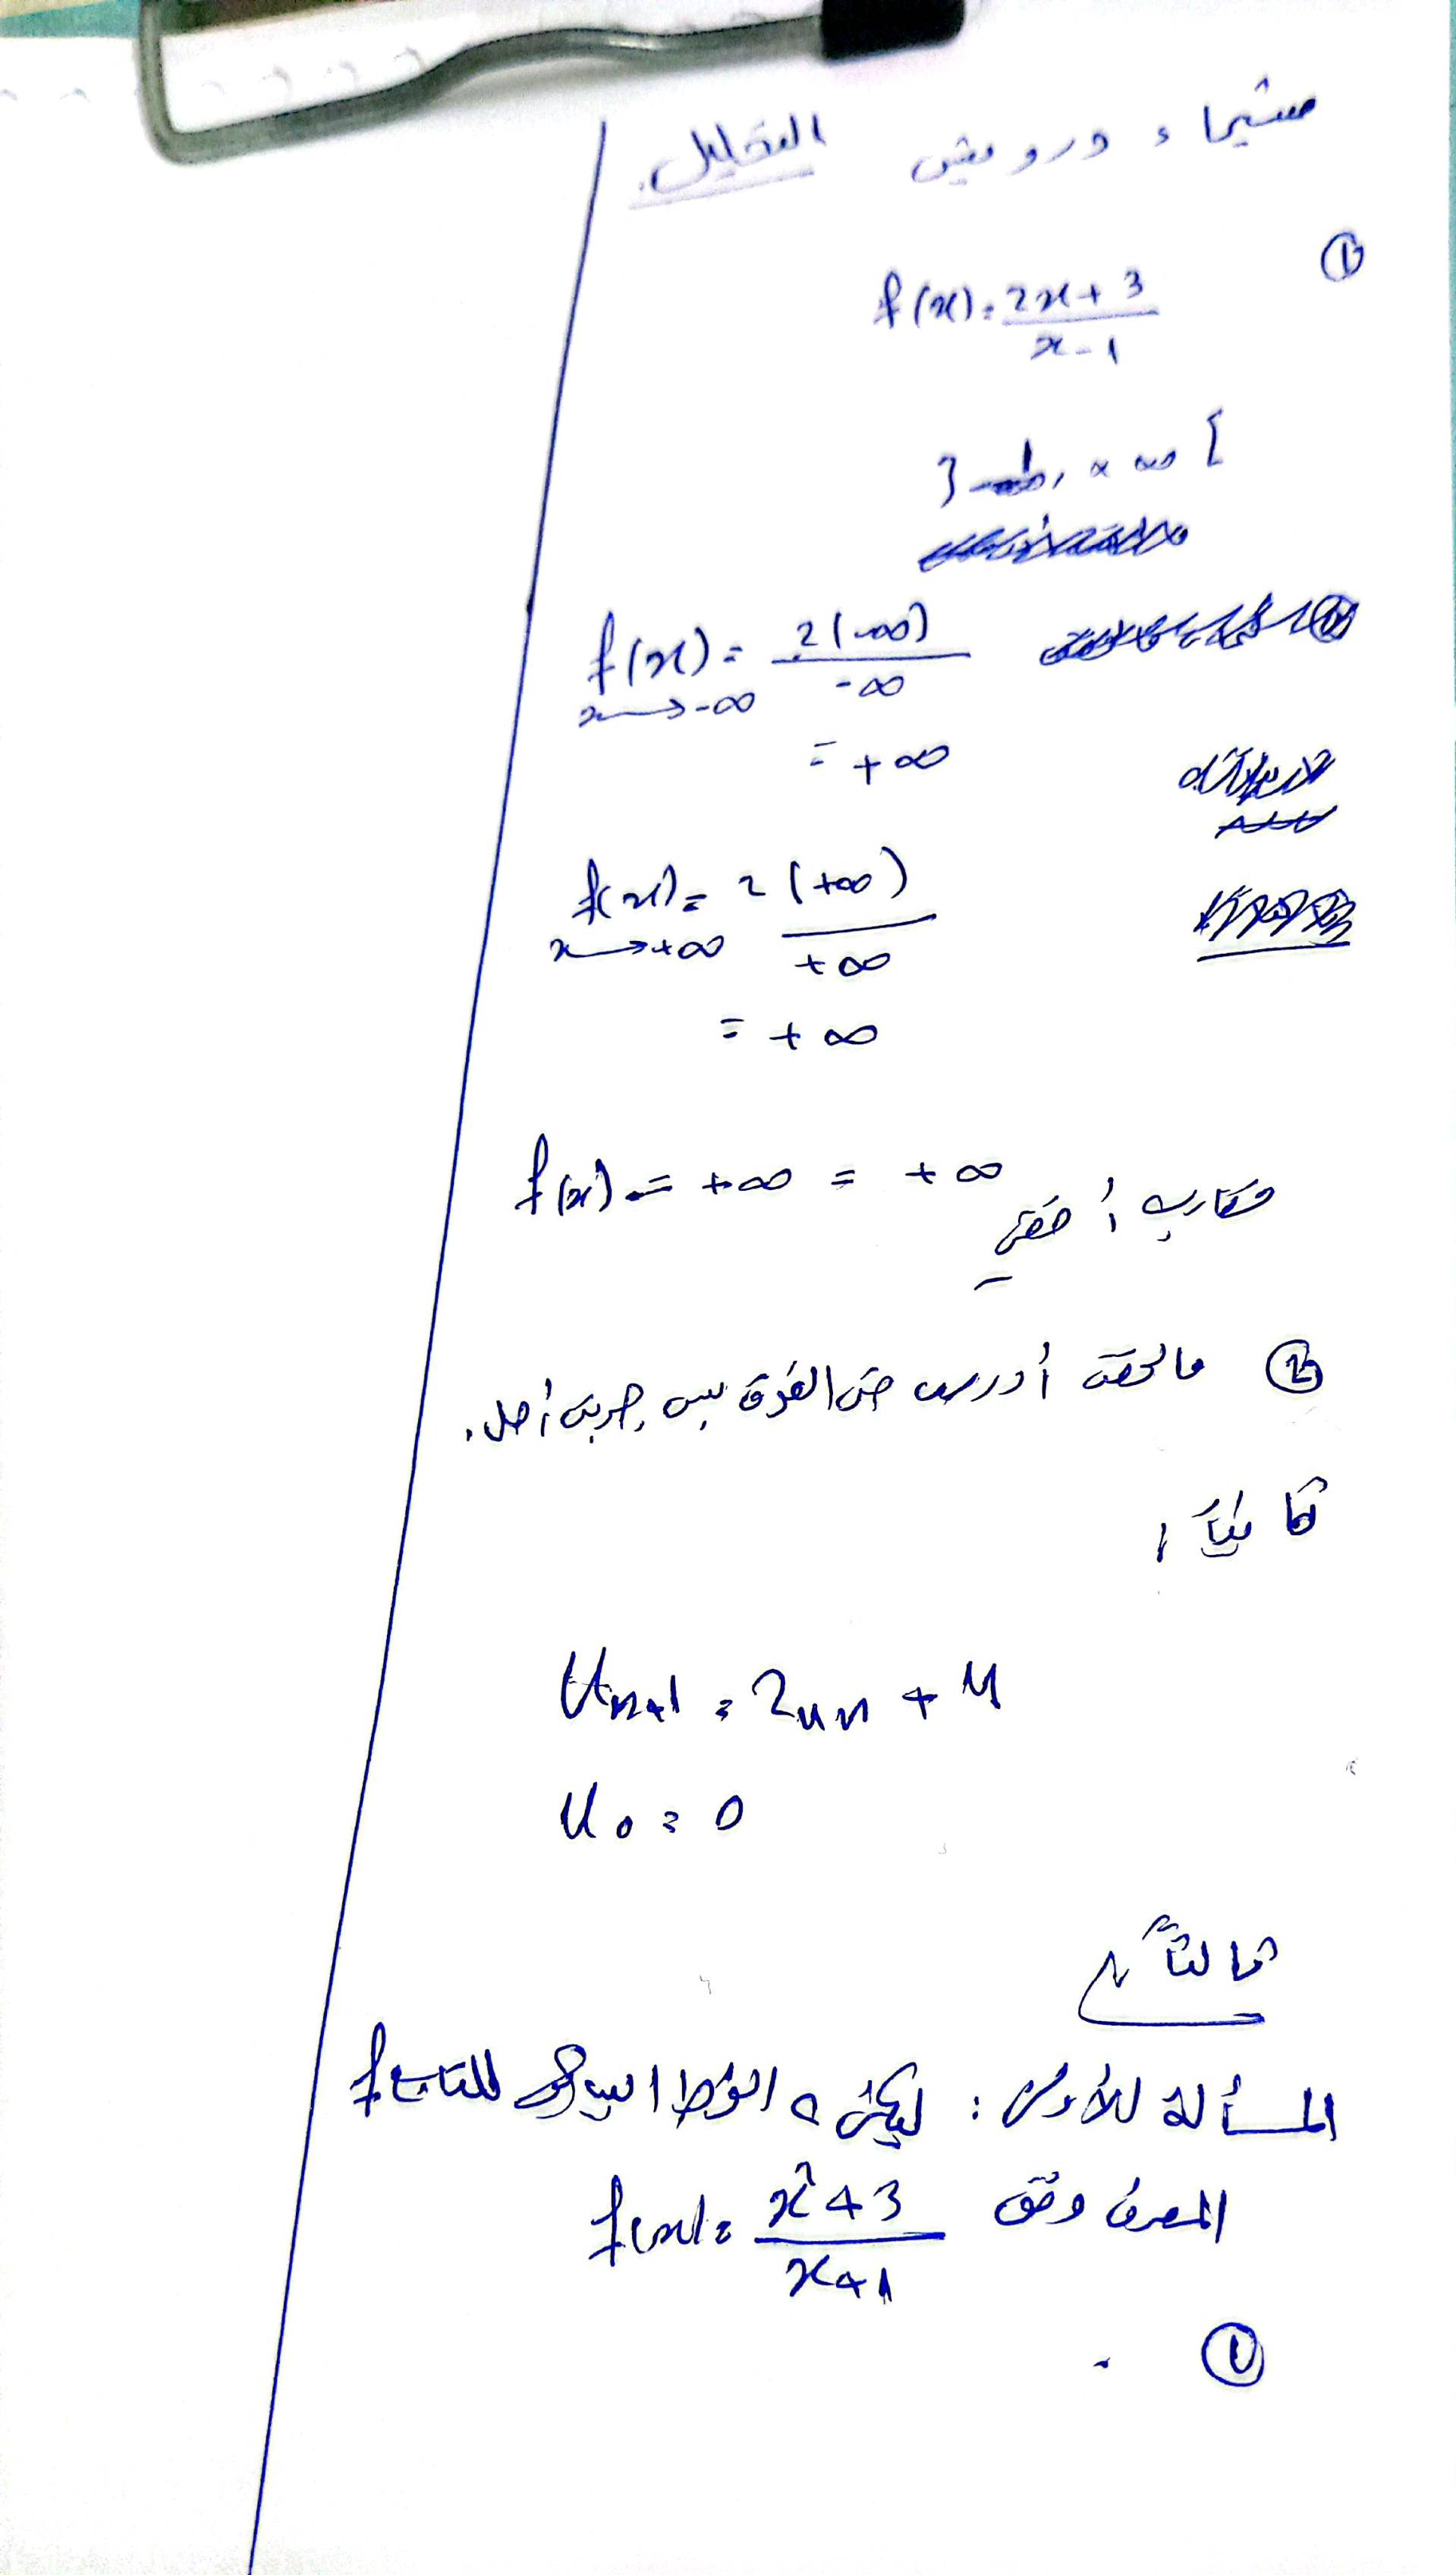 شيماء درويش التحليل.
①
f(x) = \frac{2x+3}{x-1}
f(x) = \frac{2(-∞)}{-∞}
x→-∞
= +∞
f(x) = \frac{2(+∞)}{+∞}
x→+∞
= +∞
f(x) = +∞ = +∞
مقارب أفقي
② مالحقت أدرس حتى الفرق بس جربت أحل.
ثانياً:
Un+1 = 2un + 4
U0 = 0
ثالثاً:
المسألة الأولى: ليكن C الخط البياني للتابع f
المعرف وفق f(x) = \frac{x²+3}{x+1}
①